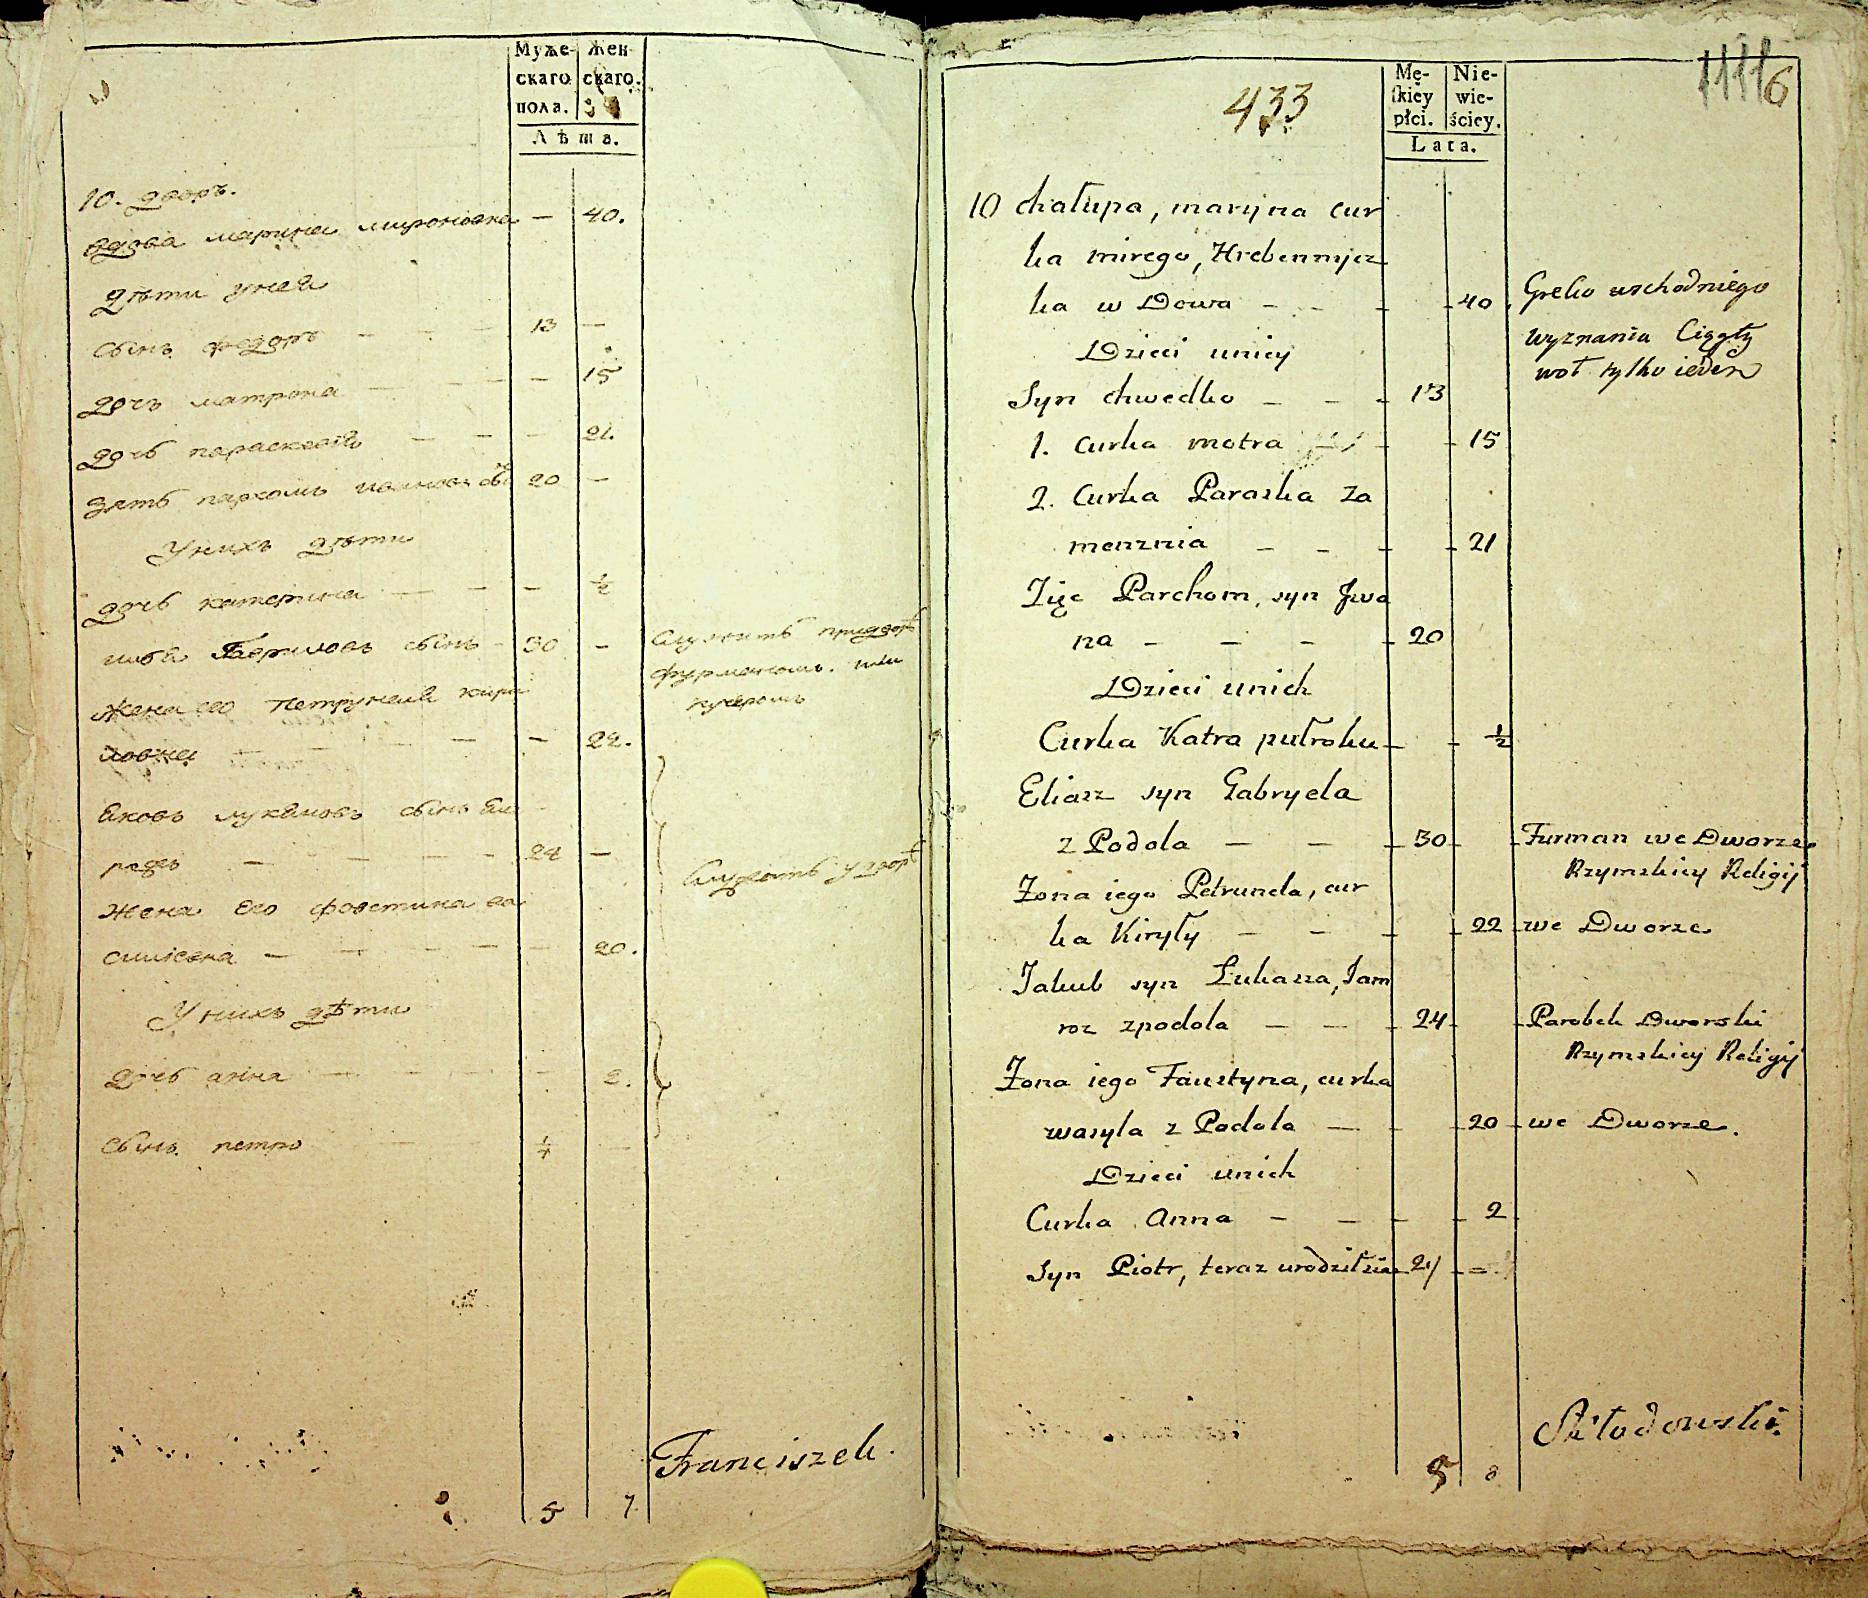 Муже-
скаго
пола.
Жен
скаго.
Лѣта.
10. дворъ.
вдова марина мироновна — 40.
дѣти унея
сынъ федоръ — — — 13 —
дочь матрона — — — — 15
дочь параскевія — — — 21.
зять пархомъ ивановъ сынъ 20 —
Унихъ дѣти
дочь катерина — — — ½
илья Гавриловъ сынъ - 30 —
служитъ придворѣ
фурманомъ. или
кучеромъ
жена его петрунеля кири
ловна — — — — — 22.
яковъ лукяновъ сынъ
— — — — 24 —
Служатъ удворѣ
жена его фовстина ва
силiевна — — — — 20.
Унихъ дѣти
дочь анна — — — — 2.
сынъ петро
Franciszek.
5 7.
433
6
Mę-
skiey
płci.
Nie-
wie-
ściey.
Lata.
10 chałupa, maryna cur
ka mirego, Hrebennyez
ka w Dowa — - - - 40
Greko wschodniego
wyznania Ciągły
woł tylko ieden
Dzieci unicy
Syn chwedko — — - 13
1. curka motra - - 15
2. Curka Paraska Za
menznia — - - - 21
Zięc Parchom, syn Jwa
na — — — - 20
Dzieci unich
Curka Katra pułroku — - ½
Eliasz syn Gabryela
z Podola — — - 30 -
Furman we Dworze
Rzymskiey Religij
Zona iego Petrunela, cur
ka Kiryły — — - - 22
we Dworze
Jakub syn Łukasza, Jam
roz zpodola — — - 24 -
Parobek Dworski
Rzymskiey Religij
Zona iego Faustyna, curka
wasyla z Podola — - - 20
we Dworze.
Dzieci unich
Curka Anna — — - - 2
Syn Piotr, teraz urodziłsie
Skłodowski.
5 8